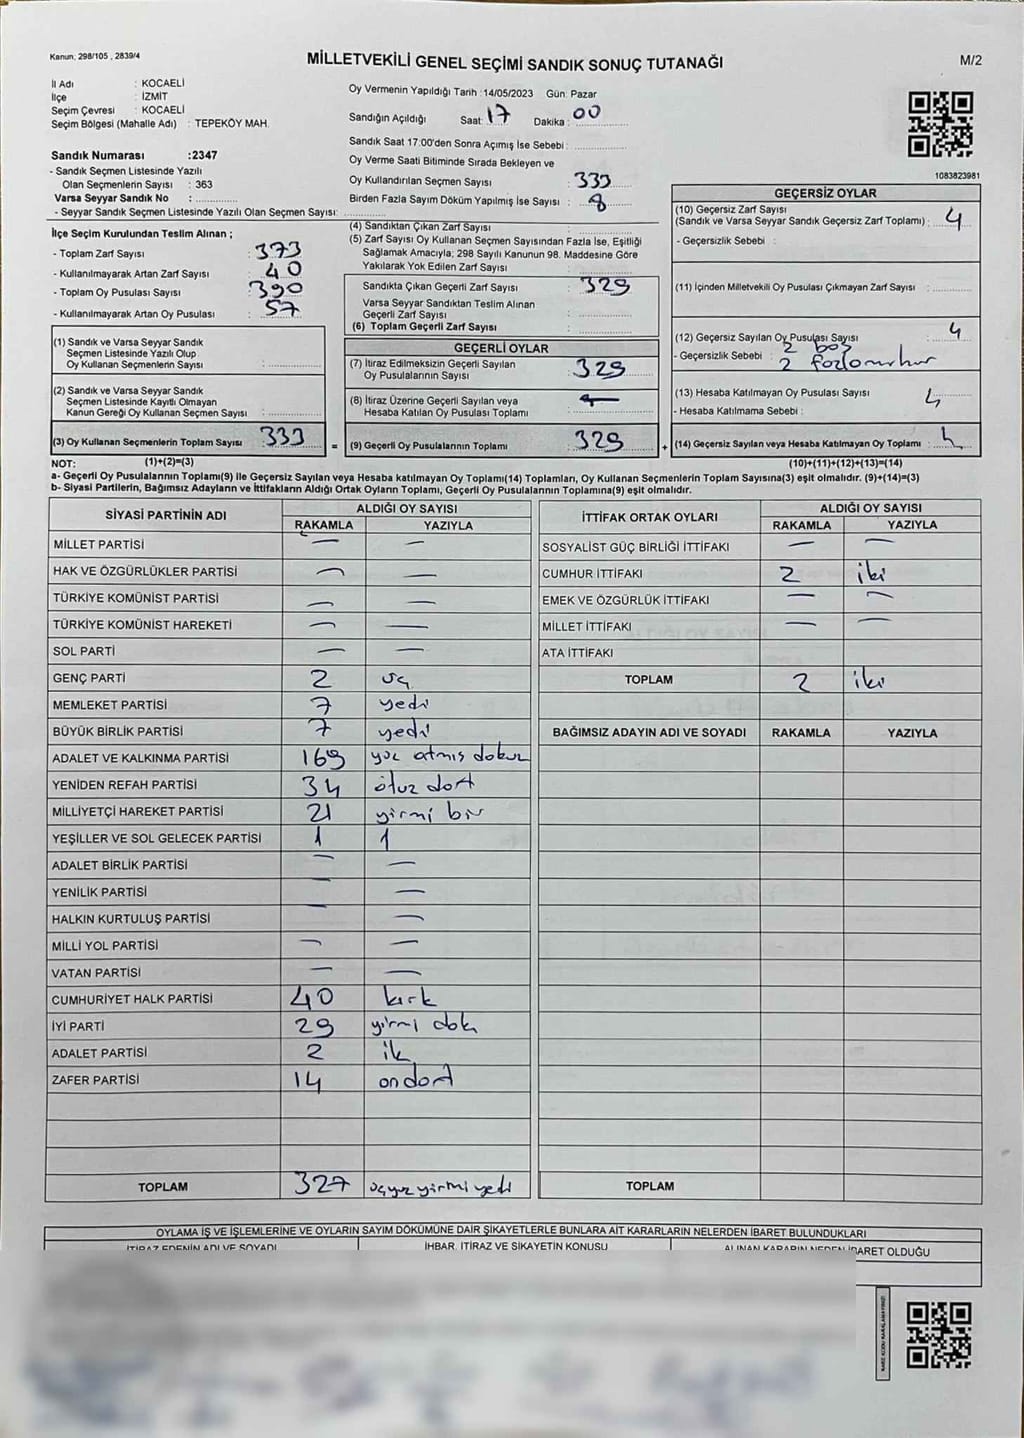 Kanun; 298/105 , 2839/4
MİLLETVEKİLİ GENEL SEÇİMİ SANDIK SONUÇ TUTANAĞI
M/2
İl Adı : KOCAELİ
İlçe : İZMİT
Seçim Çevresi : KOCAELİ
Seçim Bölgesi (Mahalle Adı) : TEPEKÖY MAH.
Oy Vermenin Yapıldığı Tarih :14/05/2023 Gün: Pazar
Sandığın Açıldığı Saat: 17 Dakika : 00
Sandık Saat 17:00'den Sonra Açımış İse Sebebi :
Oy Verme Saati Bitiminde Sırada Bekleyen ve
Oy Kullandırılan Seçmen Sayısı : 333
Birden Fazla Sayım Döküm Yapılmış İse Sayısı :
1083823981
Sandık Numarası :2347
- Sandık Seçmen Listesinde Yazılı
Olan Seçmenlerin Sayısı : 363
Varsa Seyyar Sandık No :
- Seyyar Sandık Seçmen Listesinde Yazılı Olan Seçmen Sayısı:
İlçe Seçim Kurulundan Teslim Alınan ;
- Toplam Zarf Sayısı : 373
- Kullanılmayarak Artan Zarf Sayısı : 40
- Toplam Oy Pusulası Sayısı : 390
- Kullanılmayarak Artan Oy Pusulası : 57
(1) Sandık ve Varsa Seyyar Sandık
Seçmen Listesinde Yazılı Olup
Oy Kullanan Seçmenlerin Sayısı :
(2) Sandık ve Varsa Seyyar Sandık
Seçmen Listesinde Kayıtlı Olmayan
Kanun Gereği Oy Kullanan Seçmen Sayısı :
(3) Oy Kullanan Seçmenlerin Toplam Sayısı : 333
(4) Sandıktan Çıkan Zarf Sayısı :
(5) Zarf Sayısı Oy Kullanan Seçmen Sayısından Fazla İse, Eşitliği
Sağlamak Amacıyla; 298 Sayılı Kanunun 98. Maddesine Göre
Yakılarak Yok Edilen Zarf Sayısı :
Sandıkta Çıkan Geçerli Zarf Sayısı : 329
Varsa Seyyar Sandıktan Teslim Alınan
Geçerli Zarf Sayısı :
(6) Toplam Geçerli Zarf Sayısı :
GEÇERLİ OYLAR
(7) İtiraz Edilmeksizin Geçerli Sayılan
Oy Pusulalarının Sayısı : 329
(8) İtiraz Üzerine Geçerli Sayılan veya
Hesaba Katılan Oy Pusulası Toplamı : —
= (9) Geçerli Oy Pusulalarının Toplamı : 329
GEÇERSİZ OYLAR
(10) Geçersiz Zarf Sayısı
(Sandık ve Varsa Seyyar Sandık Geçersiz Zarf Toplamı) : 4
- Geçersizlik Sebebi :
(11) İçinden Milletvekili Oy Pusulası Çıkmayan Zarf Sayısı :
(12) Geçersiz Sayılan Oy Pusulası Sayısı : 4
- Geçersizlik Sebebi : 2 boş
2
(13) Hesaba Katılmayan Oy Pusulası Sayısı : 4
- Hesaba Katılmama Sebebi :
+ (14) Geçersiz Sayılan veya Hesaba Katılmayan Oy Toplamı : 4
NOT: (1)+(2)=(3)
(10)+(11)+(12)+(13)=(14)
a- Geçerli Oy Pusulalarının Toplamı(9) ile Geçersiz Sayılan veya Hesaba katılmayan Oy Toplamı(14) Toplamları, Oy Kullanan Seçmenlerin Toplam Sayısına(3) eşit olmalıdır. (9)+(14)=(3)
b- Siyasi Partilerin, Bağımsız Adayların ve İttifakların Aldığı Ortak Oyların Toplamı, Geçerli Oy Pusulalarının Toplamına(9) eşit olmalıdır.
SİYASİ PARTİNİN ADI ALDIĞI OY SAYISI
RAKAMLA YAZIYLA
MİLLET PARTİSİ — —
HAK VE ÖZGÜRLÜKLER PARTİSİ — —
TÜRKİYE KOMÜNİST PARTİSİ — —
TÜRKİYE KOMÜNİST HAREKETİ — —
SOL PARTİ — —
GENÇ PARTİ 2 üç
MEMLEKET PARTİSİ 7 yedi
BÜYÜK BİRLİK PARTİSİ 7 yedi
ADALET VE KALKINMA PARTİSİ 169 yüz atmış dokuz
YENİDEN REFAH PARTİSİ 34 otuz dört
MİLLİYETÇİ HAREKET PARTİSİ 21 yirmi bir
YEŞİLLER VE SOL GELECEK PARTİSİ 1 1
ADALET BİRLİK PARTİSİ — —
YENİLİK PARTİSİ — —
HALKIN KURTULUŞ PARTİSİ — —
MİLLİ YOL PARTİSİ — —
VATAN PARTİSİ — —
CUMHURİYET HALK PARTİSİ 40 kırk
İYİ PARTİ 29 yirmi dok
ADALET PARTİSİ 2 ik
ZAFER PARTİSİ 14 ondört
TOPLAM 327 üçyüz yirmi yedi
İTTİFAK ORTAK OYLARI ALDIĞI OY SAYISI
RAKAMLA YAZIYLA
SOSYALİST GÜÇ BİRLİĞİ İTTİFAKI — —
CUMHUR İTTİFAKI 2 iki
EMEK VE ÖZGÜRLÜK İTTİFAKI — —
MİLLET İTTİFAKI — —
ATA İTTİFAKI
TOPLAM 2 iki
BAĞIMSIZ ADAYIN ADI VE SOYADI RAKAMLA YAZIYLA
TOPLAM
OYLAMA İŞ VE İŞLEMLERİNE VE OYLARIN SAYIM DÖKÜMÜNE DAİR ŞİKAYETLERLE BUNLARA AİT KARARLARIN NELERDEN İBARET BULUNDUKLARI
İTİRAZ EDENİN ADI VE SOYADI İHBAR, İTİRAZ VE ŞİKAYETİN KONUSU ALINAN KARARIN NEDEN İBARET OLDUĞU